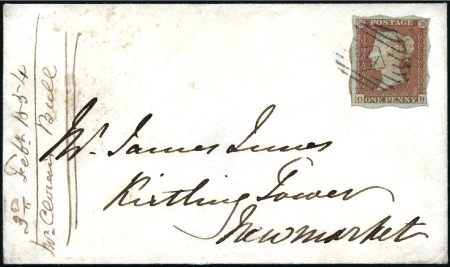 POSTAGE
ONE PENNY
Mr. James Innes
Kirtling Tower
Newmarket
3rd Feby. 1854
Bull